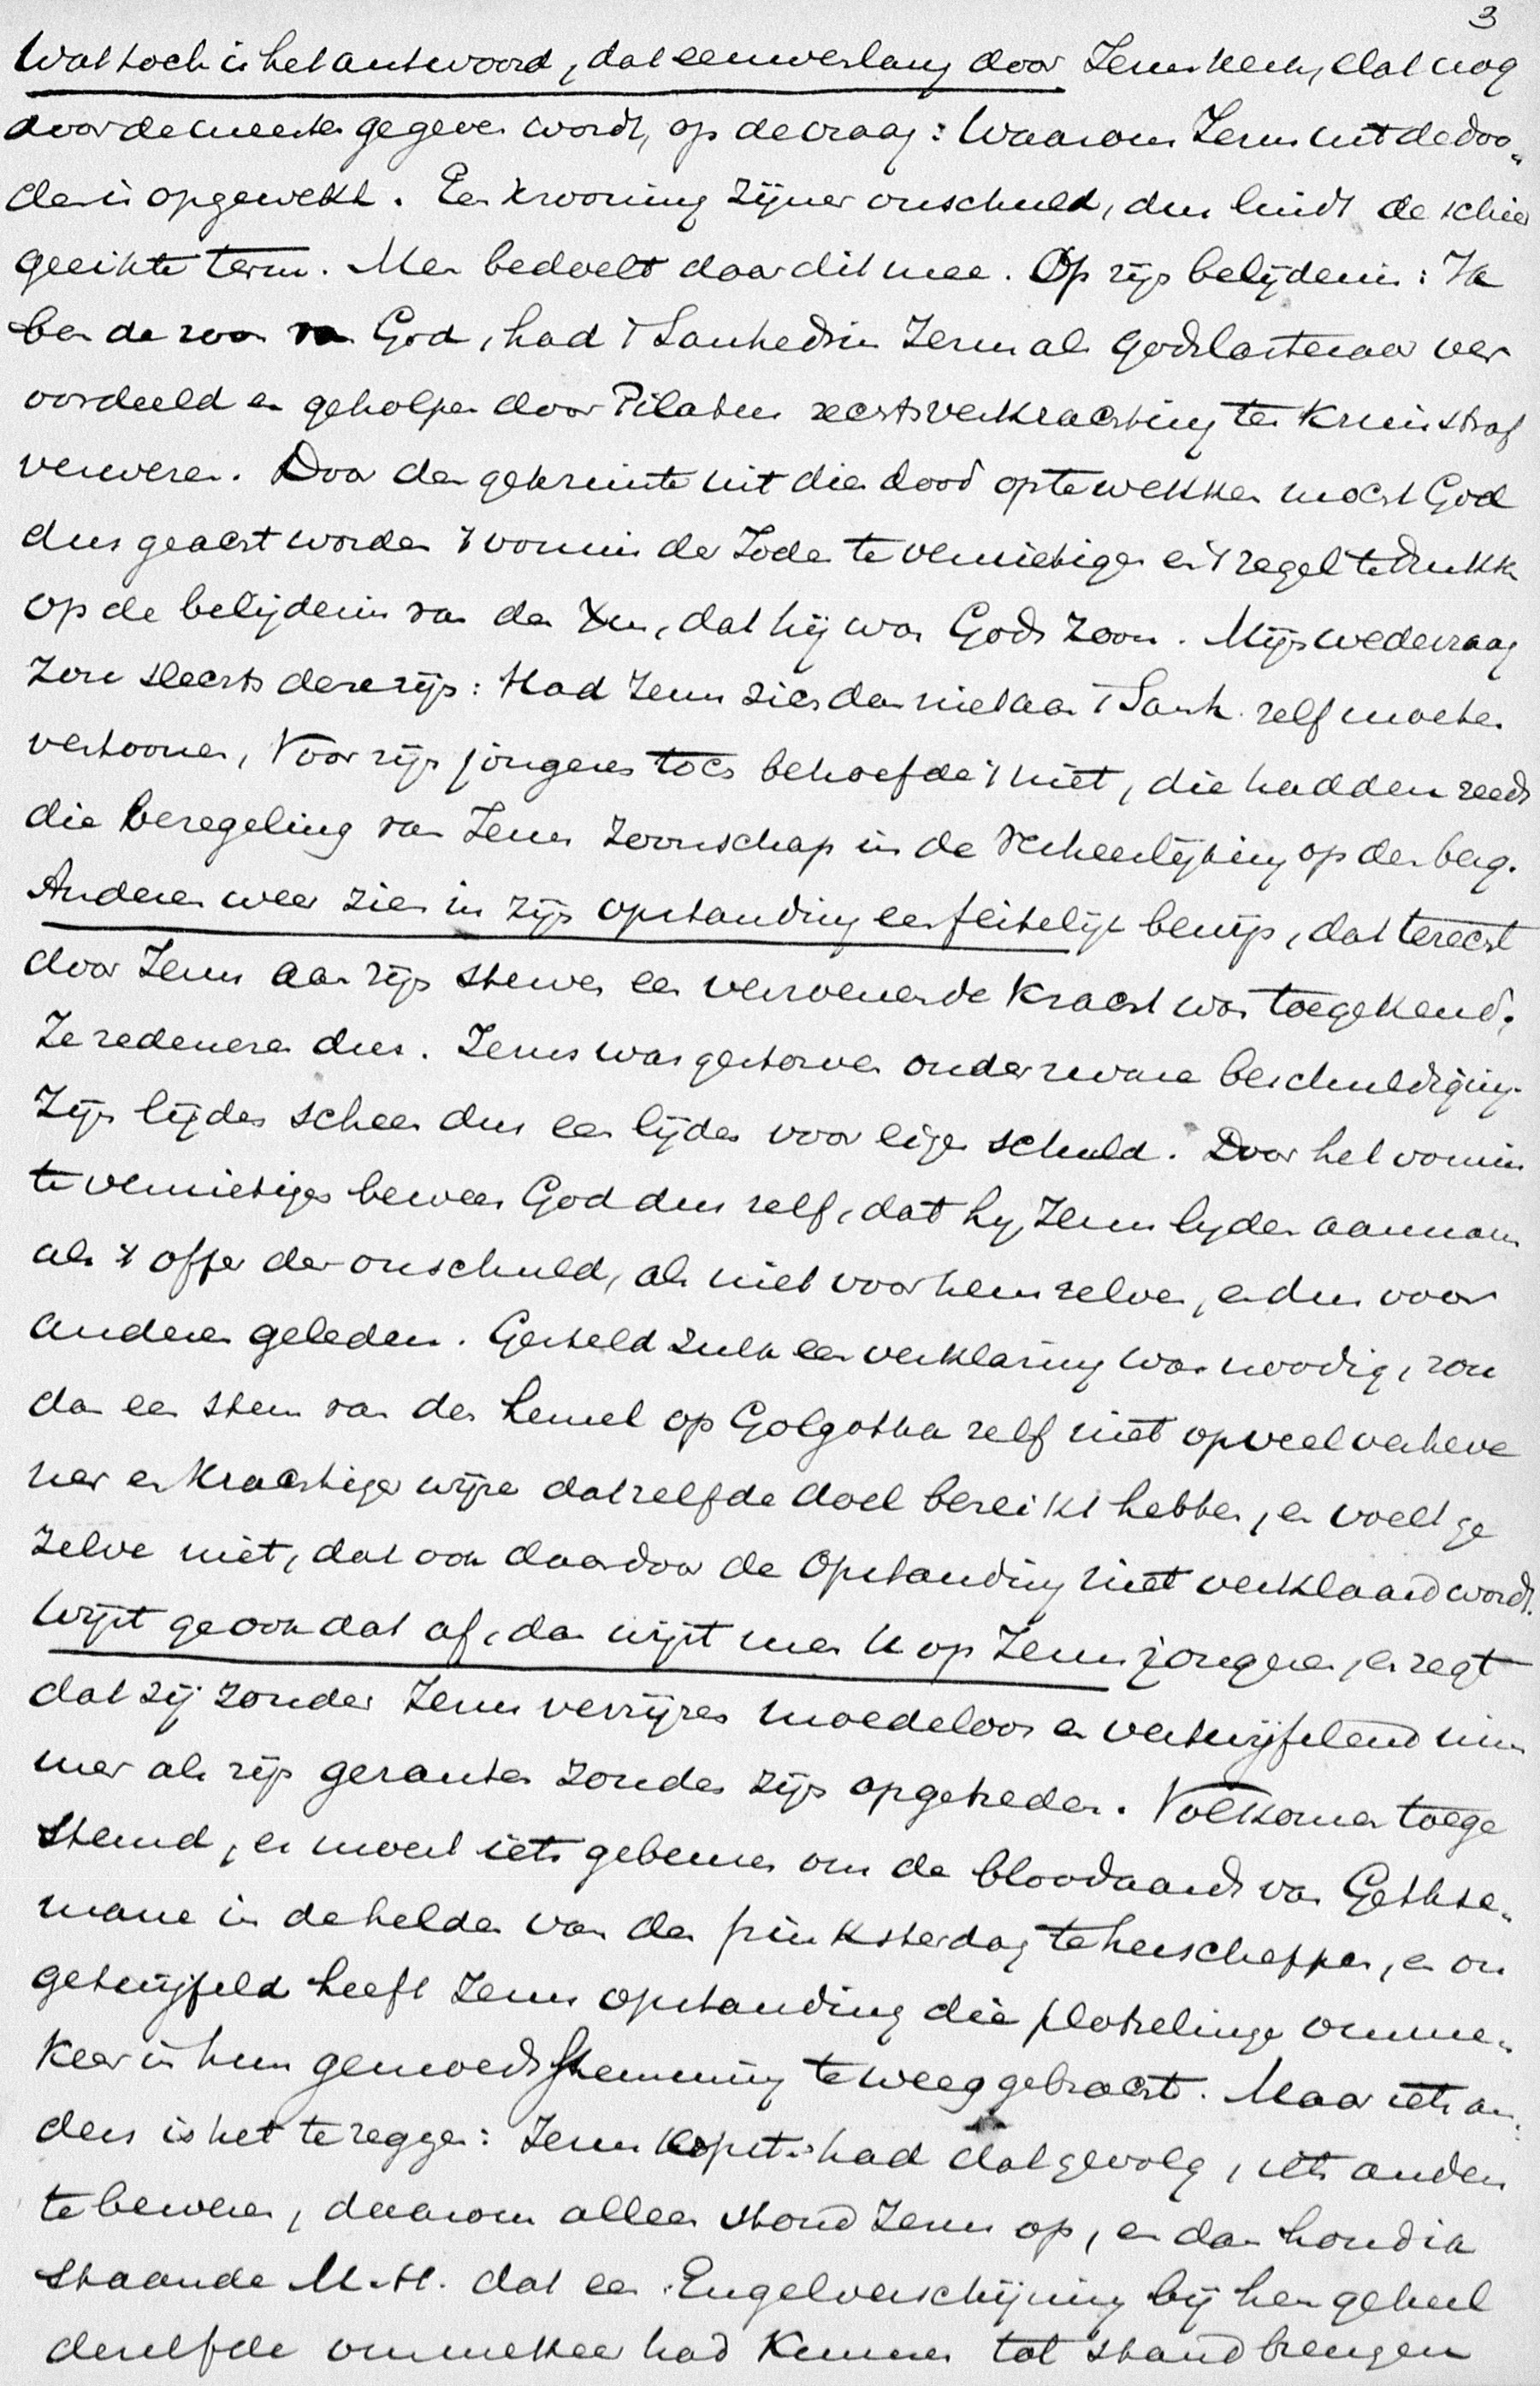 3
Wat toch is het antwoord, dat eeuwenlang door Jezus kerk, dat nog
door de meesten gegeven wordt, op de vraag: Waarom Jezus uit de doo„
den is opgewekt. Een krooning zijner onschuld, dus luidt de schier
geeikte term. Men bedoelt daar dit mee. Op zijn belijdenis: Ik
ben de zoon van God, had 't Sanhedrin Jezus als godslasteraar ver
oordeeld en geholpen door Pilatus rechtsverkrachting ten kruisstraf
verwezen. Door den gekruiste uit dien dood op te wekken moest God
dus geacht worden 't vonnis der Joden te vernietigen en 't zegel te drukken
op de belijdenis van den Xus, dat hij was Gods zoon. Mijn wedervraag
zou slechts deze zijn: Had Jezus zich dan niet aan 't Sanh. zelf moeten
vertoonen, Voor zijn jongeren toch behoefde 't niet, die hadden reeds
die bezegeling van Jezus zoonschap in de Verheerlijking op den berg.
Anderen weer zien in zijn opstanding een feitelijk bewijs, dat terecht
door Jezus aan zijn sterven een verzoenende kracht was toegekend.
Ze redeneren dus. Jezus was gestorven onder zware beschuldiging.
Zijn lijden scheen dus een lijden voor eigen schuld. Door het vonnis
te vernietigen bewees God dus zelf, dat hy Jezus lyden aannam
als 't offer der onschuld, als niet voor hem zelven, en dus voor
anderen geleden. Gesteld zulk een verklaring was noodig, zou
dan een stem van den hemel op Golgotha zelf niet op veel verheve
ner en krachtiger wijze datzelfde doel bereikt hebben, en voelt ge
zelve niet, dat ook daardoor de Opstanding niet verklaard wordt.
Wijst ge ook dat af, dan wijst men U op Jezus jongeren, en zegt
dat zij zonder Jezus verrijzen moedeloos en vertwijfelend nim
mer als zijn gezanten zouden zijn opgetreden. Volkomen toege
stemd, er moest iets gebeuren om de bloodaards van Gethse„
mane in de helden van den pinksterdag te herscheppen, en on
getwijfeld heeft Jezus opstanding die plotselinge omme„
keer in hun gemoedsstemming te weeg gebracht. Maar iets an„
ders is het te zeggen: Jezus opst. had dat gevolg, iets anders
te beweren, daarom alleen stond Jezus op, en dan houd ik
staande M.H. dat een Engelverschijning bij hen geheel
denzelfde ommekeer had kunnen tot stand brengen